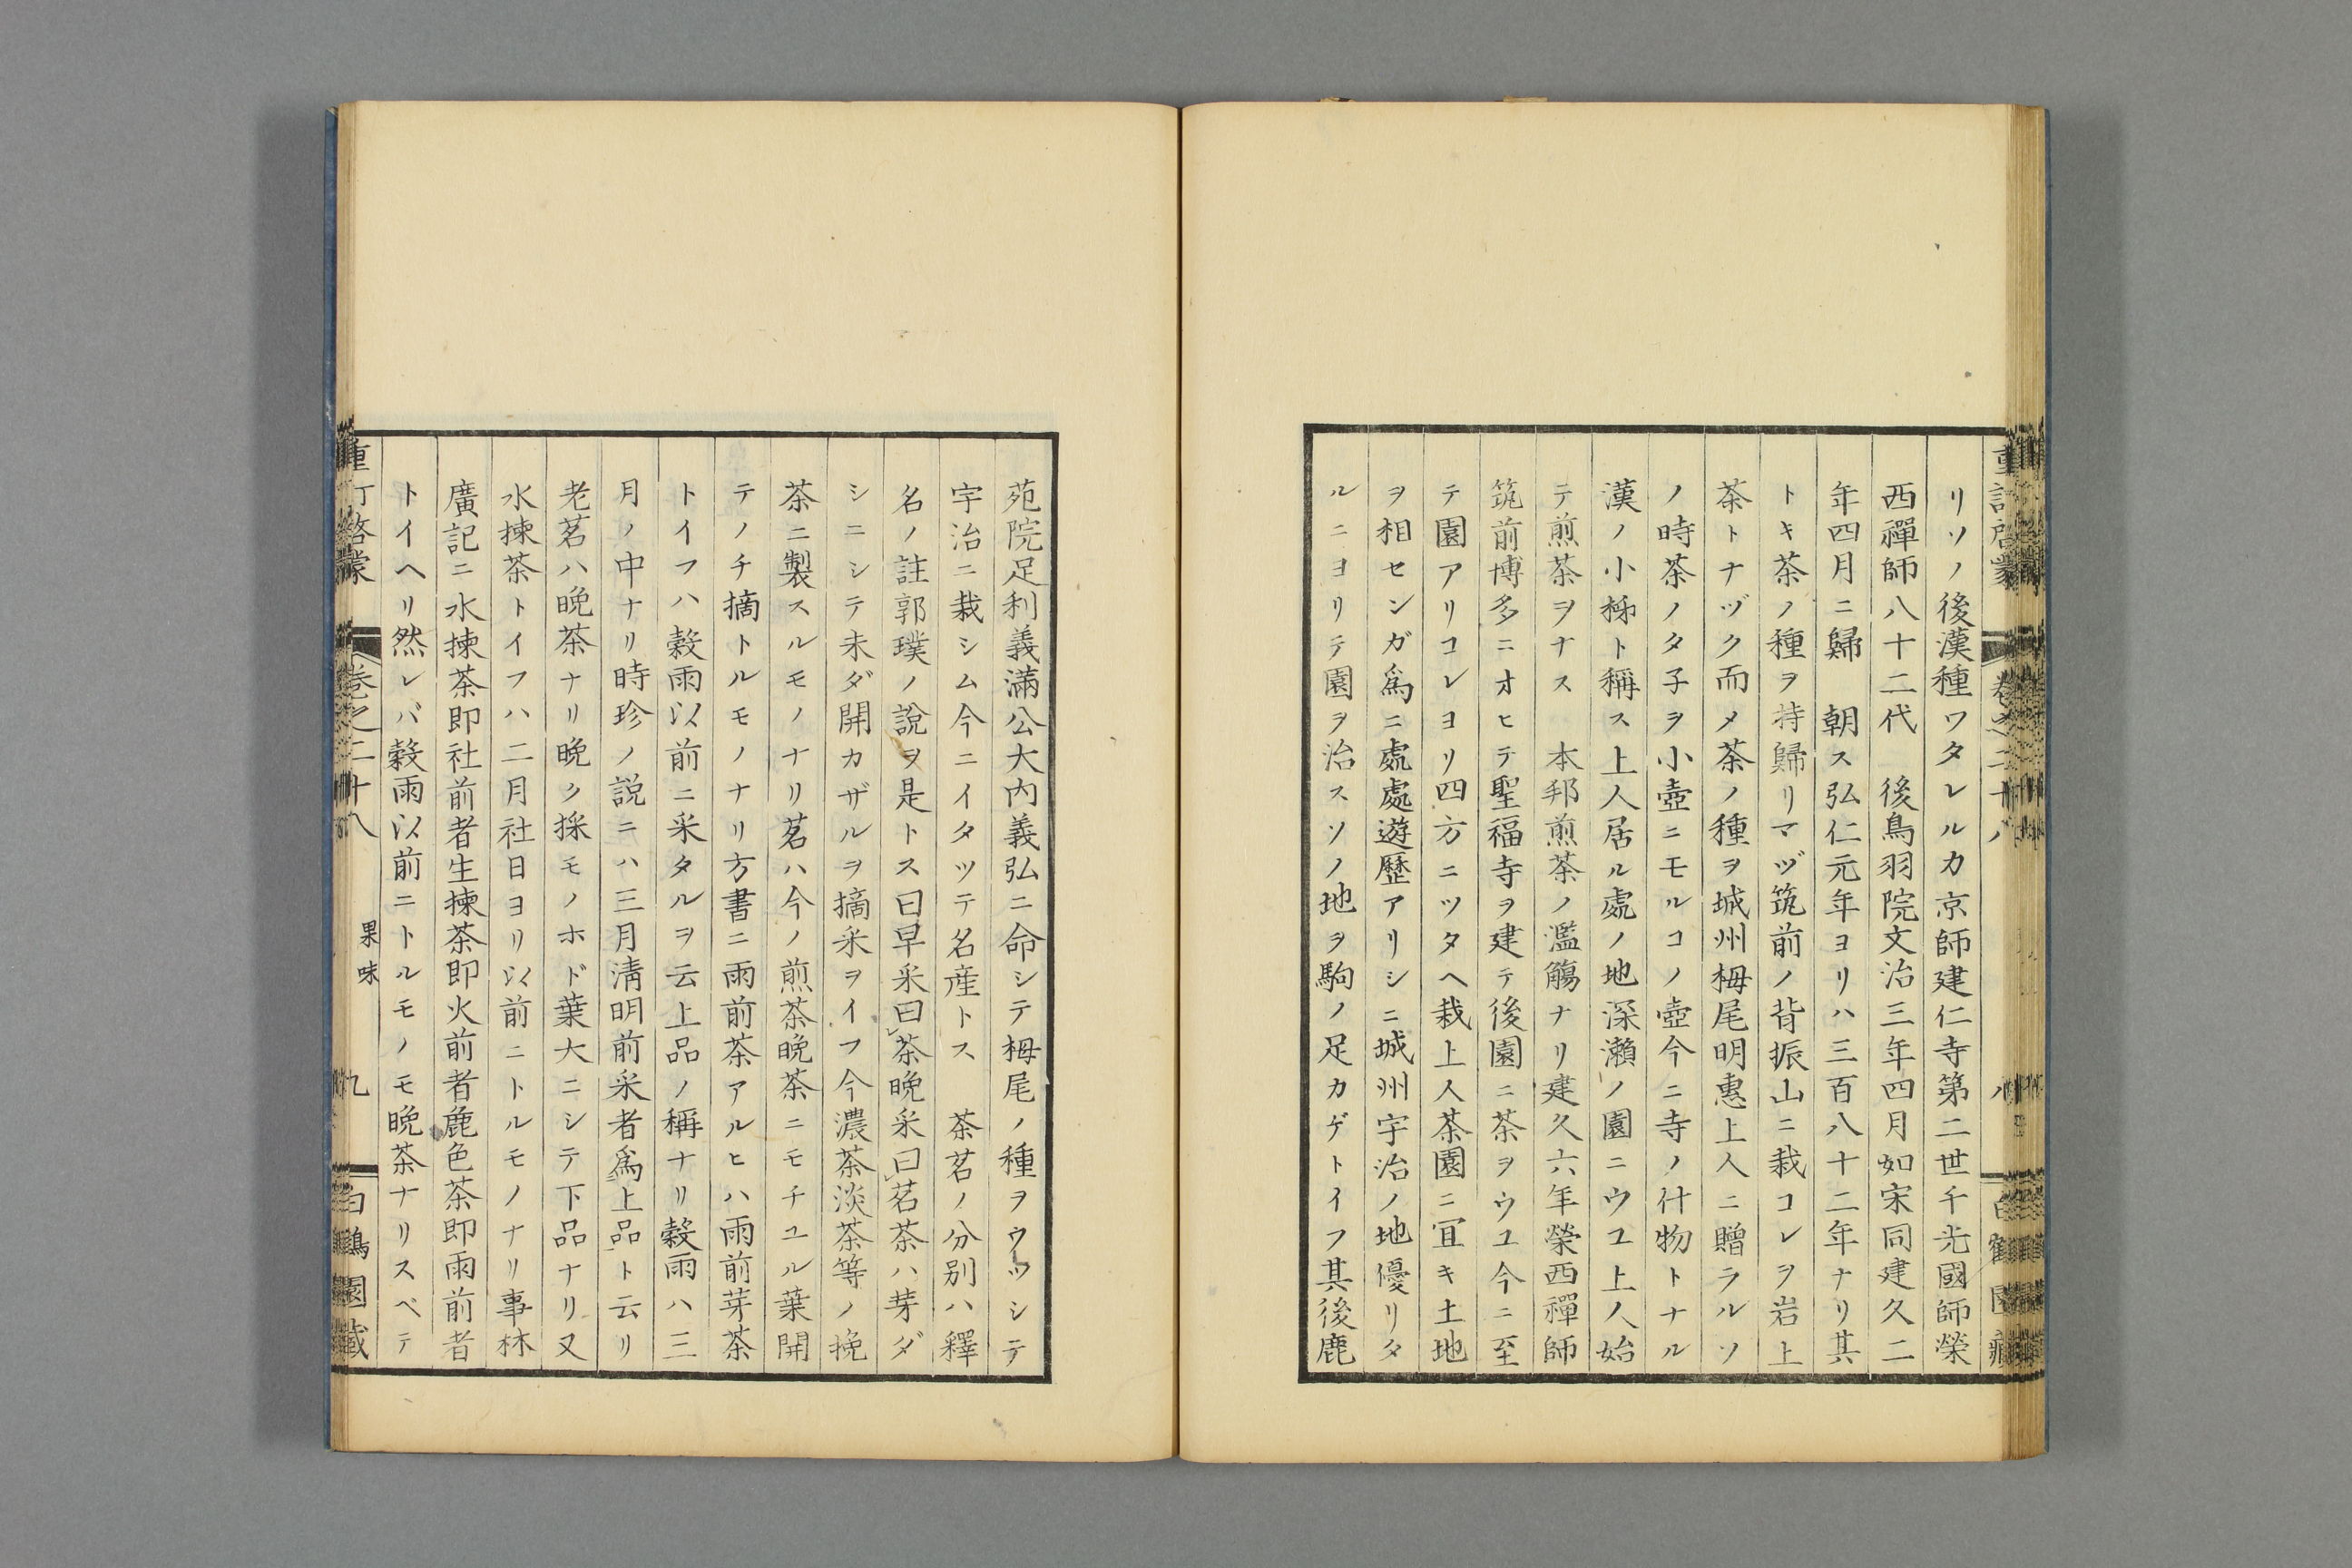 リソノ後漢種ワタレルカ京師建仁寺第二世千光國師榮
西禪師八十二代　後鳥羽院文治三年四月如宋同建久二
年四月ニ歸　朝ス弘仁元年ヨリハ三百八十二年ナリ其
トキ茶ノ種ヲ持歸リマヅ筑前ノ背振山ニ栽コレヲ岩上
茶トナヅク而メ茶ノ種ヲ城州栂尾明惠上人ニ贈ラルソ
ノ時茶ノタ子ヲ小壺ニモルコノ壺今ニ寺ノ什物トナル
漢ノ小柹ト稱ス上人居ル處ノ地深瀨ノ園ニウユ上人始
テ煎茶ヲナス　本邦煎茶ノ濫觴ナリ建久六年榮西禪師
筑前博多ニオヒテ聖福寺ヲ建テ後園ニ茶ヲウユ今ニ至
テ園アリコレヨリ四方ニツタヘ栽上人茶園ニ宜キ土地
ヲ相センガ爲ニ處處遊歷アリシニ城州宇治ノ地優リタ
ルニヨリテ園ヲ治スソノ地ヲ駒ノ足カゲトイフ其後鹿
苑院足利義滿公大內義弘ニ命シテ栂尾ノ種ヲウツシテ
宇治ニ栽シム今ニイタツテ名産トス　茶茗ノ分別ハ釋
名ノ註郭璞ノ說ヲ是トス曰早采曰茶晚采曰茗茶ハ芽ダ
シニシテ未ダ開カザルヲ摘采ヲイフ今濃茶淡茶等ノ挽
茶ニ製スルモノナリ茗ハ今ノ煎茶晚茶ニモチユル葉開
テノチ摘トルモノナリ方書ニ雨前茶アルヒハ雨前芽茶
トイフハ穀雨以前ニ采タルヲ云上品ノ稱ナリ穀雨ハ三
月ノ中ナリ時珍ノ説ニハ三月淸明前采者爲上品ト云リ
老茗ハ晚茶ナリ晚ク採モノホド葉大ニシテ下品ナリ又
水揀茶トイフハ二月社日ヨリ以前ニトルモノナリ事林
廣記ニ水揀茶即社前者生揀茶即火前者麁色茶即雨前者
トイヘリ然レバ穀雨以前ニトルモノモ晚茶ナリスベテ
重訂啓蒙　卷之二十八　果味　九　白鶴園藏